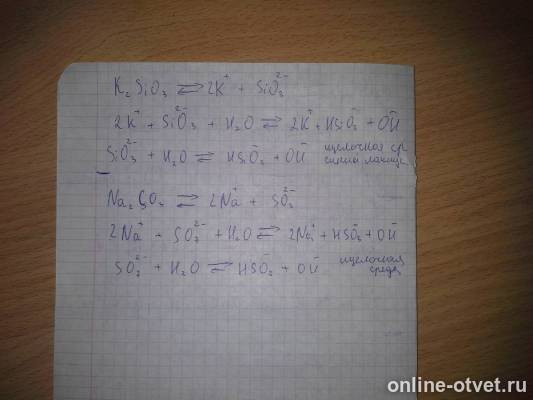 K₂SiO₃ ⇌ 2K⁺ + SiO₃²⁻
2K⁺ + SiO₃²⁻ + H₂O ⇌ 2K⁺ + HSiO₃⁻ + OH⁻
SiO₃²⁻ + H₂O ⇌ HSiO₃⁻ + OH⁻ щелочная ср
синий
Na₂SO₃ ⇌ 2Na⁺ + SO₃²⁻
2Na⁺ + SO₃²⁻ + H₂O ⇌ 2Na⁺ + HSO₃⁻ + OH⁻
SO₃²⁻ + H₂O ⇌ HSO₃⁻ + OH⁻ щелочная
среда
online-otvet.ru